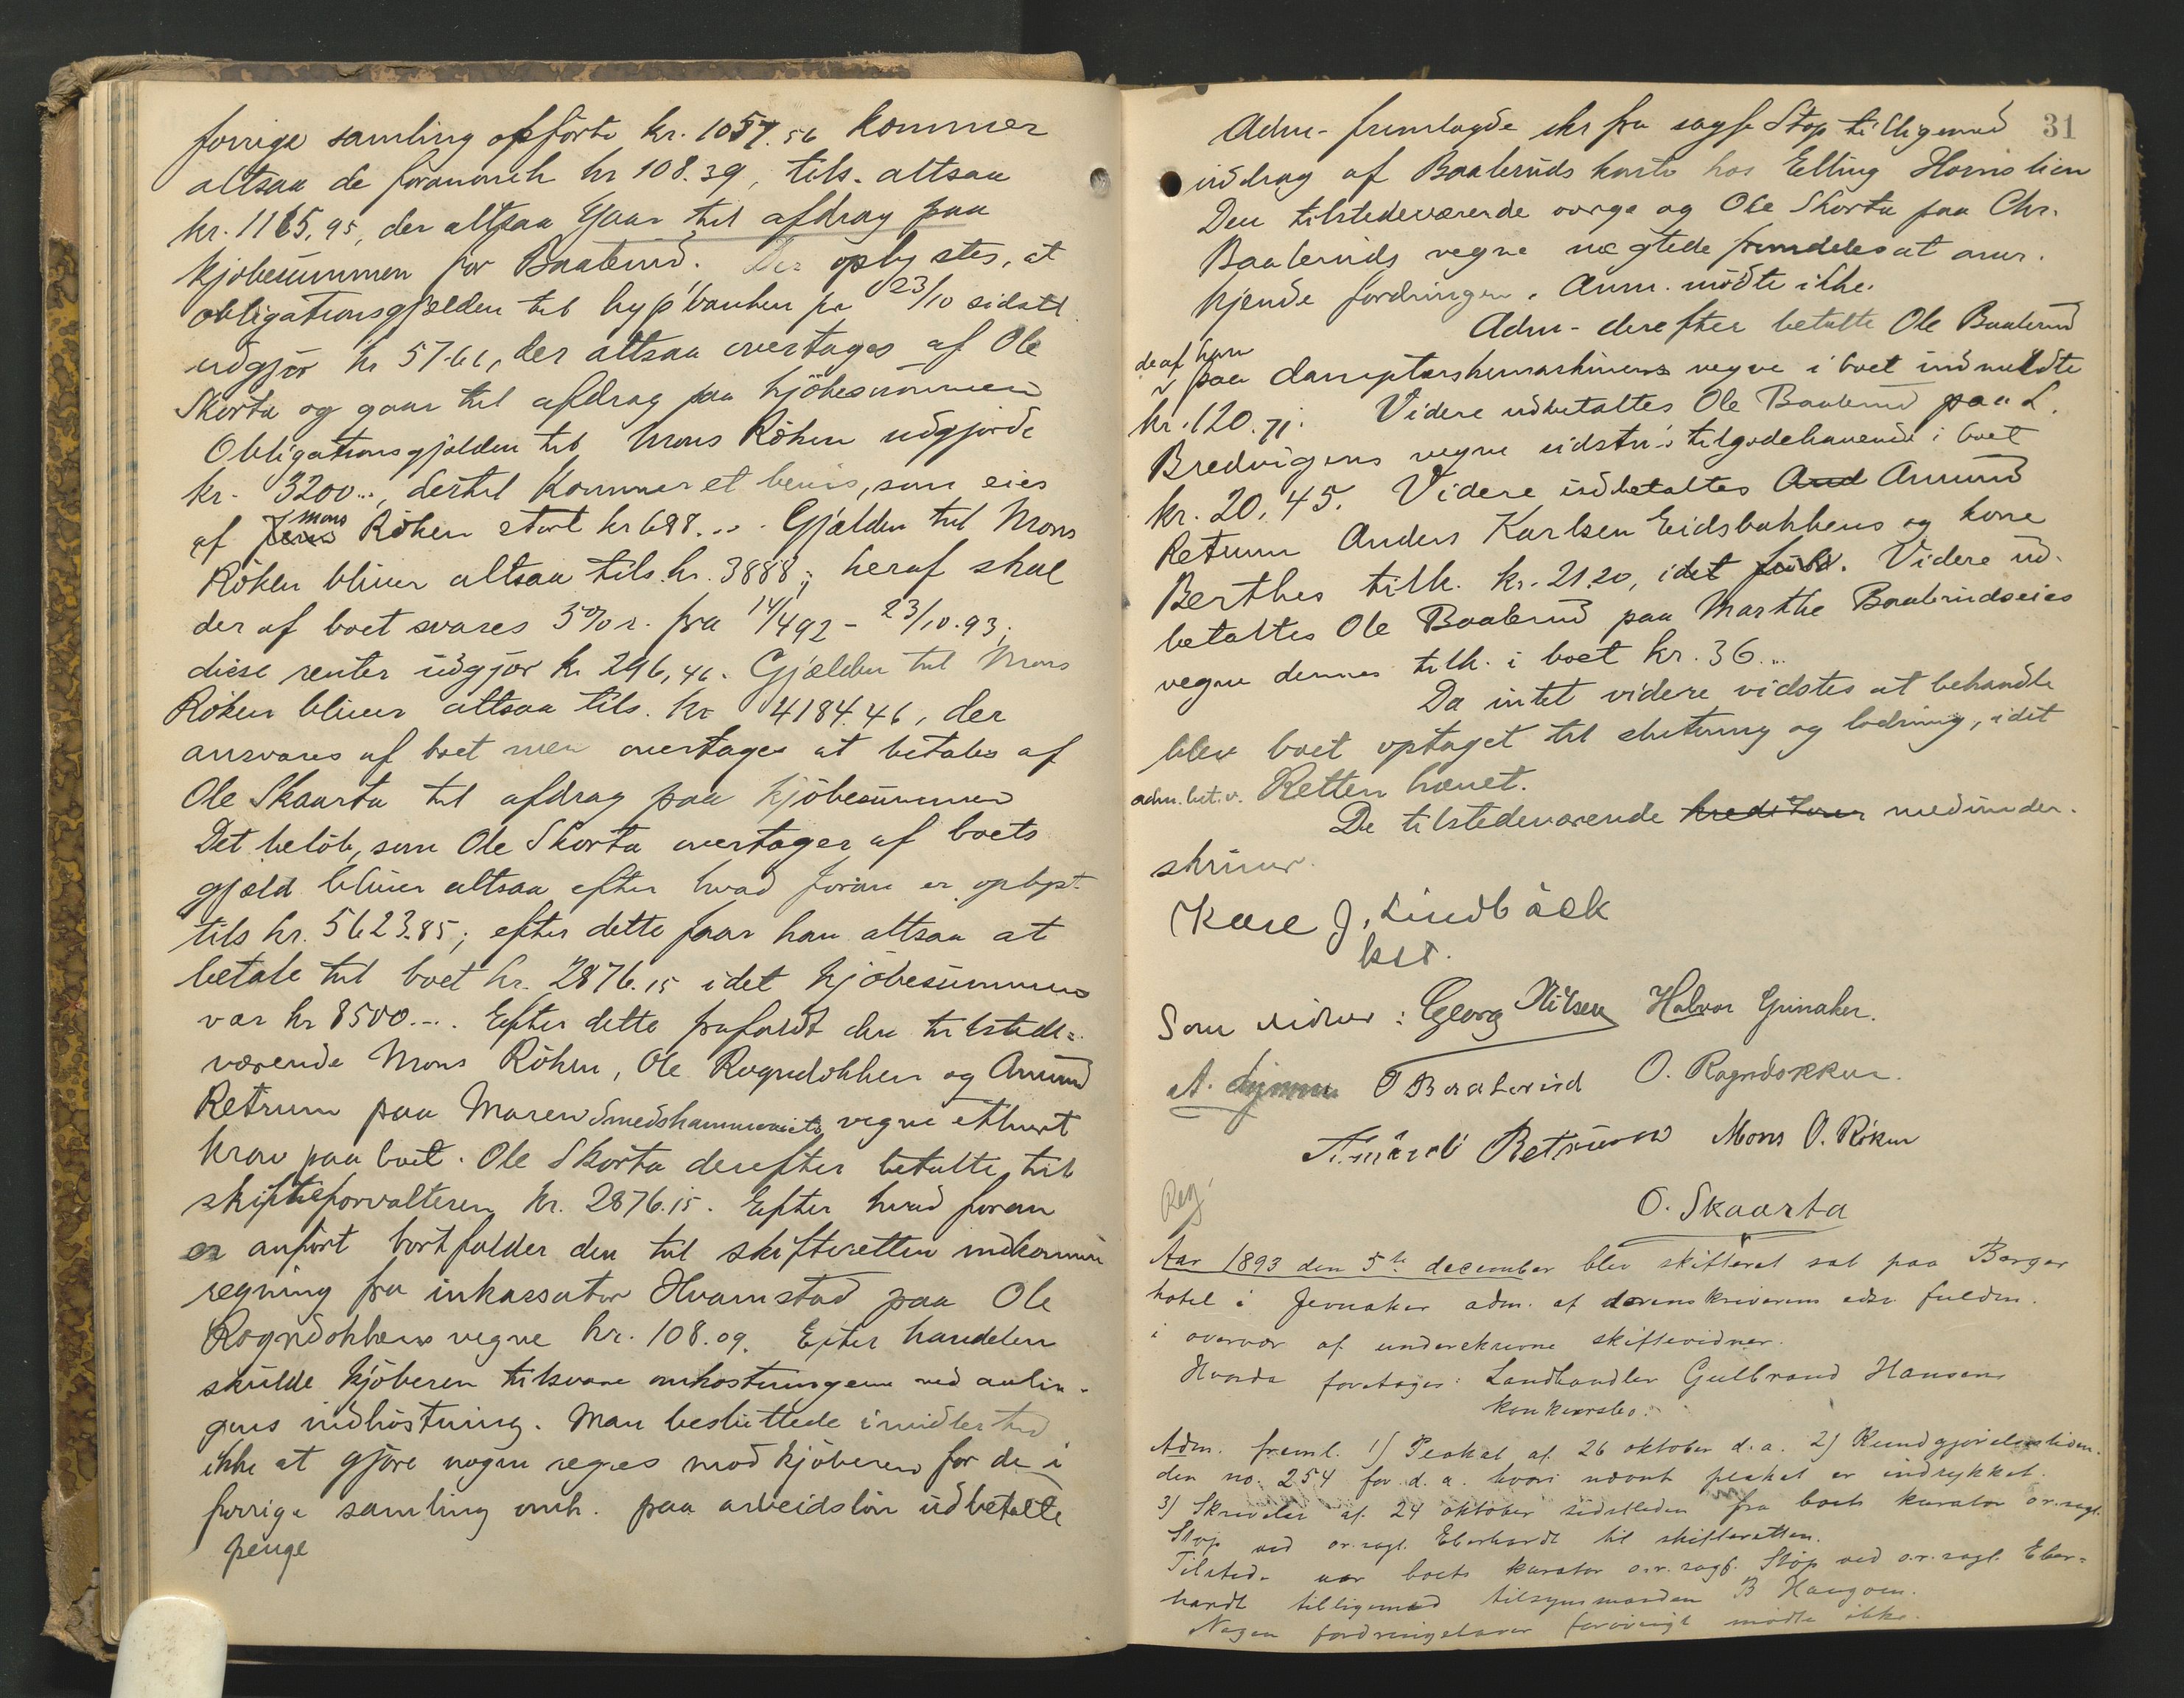 forrige samling opførte kr. 1057.56 kommer
altsaa de foranævnte kr 108.39, tils. altsaa
kr. 1165,95, der altsaa gaar til afdrag paa
kjøbesummen for Baalerud. Der oplystes, at
obligationsgjælden til hyp.banken pr 23/10 sidstl.
udgjør kr 57.61, der altsaa overtages af Ole
Skorta og gaar til afdrag paa kjøbesummen
Obligationsgjælden til Mons Røken udgjorde
kr. 3200..., dertil kommer et bevis, som eies
af Jens Mons Røken stort kr 688... Gjælden til Mons
Røken bliver altsaa tils. kr. 3888; heraf skal
der af boet svares 5% r. fra 14/4 92 - 23/10.93;
disse renter udgjør kr 296,46. Gjælden til Mons
Røken bliver altsaa tils. kr 4184.46, der
ansvares af boet men overtages at betales af
Ole Skaarta til afdrag paa kjøbesummen
Det beløb, som Ole Skorta overtager af boets
gjæld bliver altsaa efter hvad foran er oplyst
tils kr. 5623.85; efter dette faar han altsaa at
betale til boet kr. 2876.15 idet kjøbesummen
var kr 8500... Efter dette frafaldt de tilstede-
værende Mons Røken, Ole Rognedokken og Amund
Retrum paa Maren Smedshammereiets vegne ethvert
krav paa boet. Ole Skorta derefter betalte til
skifteforvalteren kr. 2876.15. Efter hvad foran
er anført bortfalder den til skifteretten indkomne
regning fra inkassator Hvamstad paa Ole
Rognedokkens vegne kr. 108.09. Efter handelen
skulde kjøberen tilsvare omkostningerne ved avlin-
gens indhøstning. Man besluttede imidlertid
ikke at gjøre nogen regres mod kjøberen for de i
forrige samling omh. paa arbeidsløn udbetalte
penge
31
Adm. fremlagde skr fra sagf. Støp tilligemed
uddrag af Baaleruds konto hos Elling Hornslien
Den tilstedeværende værge og Ole Skorta paa Chr.
Baaleruds vegne nægtede fremdeles at aner-
kjende fordringen. Anm. mødte ikke.
Adm. derefter betalte Ole Baalerud
de af ham
paa damptærskemaskinens vegne i boet indmeldte
kr. 120.71. Videre udbetaltes Ole Baalerud paa L.
Bredvigens vegne sidstn's tilgodehavende i boet
kr. 20.45. Videre udbetaltes And Amund
Retrum Anders Karlsen Eidsbakkens og kone
Berthes tilh. kr. 21.20, idet . Videre ud-
betaltes Ole Baalerud paa Marthe Baalerudseies
vegne dennes tilh. i boet kr. 36...
Da intet videre vidstes at behandle
blev boet optaget til slutning og lodning, idet
adm. bet. v. Retten hævet.
De tilstedeværende kreditorer medunder-
skriver.
Kare J. Lindbäck
kst.
Som vidner: Georg Nilsen Halvor Grinaker.
A. O Baalerud O. Rognedokken.
Amund Retrum Mons O. Røken
O. Skaarta
Reg.
Aar 1893 den 5te december blev skifteret sat paa Berger
hotel i Jevnaker adm. af sorenskriverens edsv. fuldm.
i overvær af underskrevne skiftevidner.
Hvorda foretoges: Landhandler Gulbrand Hansens
konkursbo.
Adm. freml. 1) Plakat af 26 oktober d.a. 2) Kundgjørelsestiden-
den no. 254 for d.a. hvori nævnt plakat er indrykket.
3) Skrivelse af 24 oktober sidstleden fra boets kurator o.r.sagf.
Støp ved o.r.sagf. Eberhardt til skifteretten.
Tilstede var boets kurator o.r.sagf. Støp ved o.r.sagf. Eber-
hardt tilligemed tilsynsmanden B Haugom.
Nogen fordringshaver forøvrigt mødte ikke.